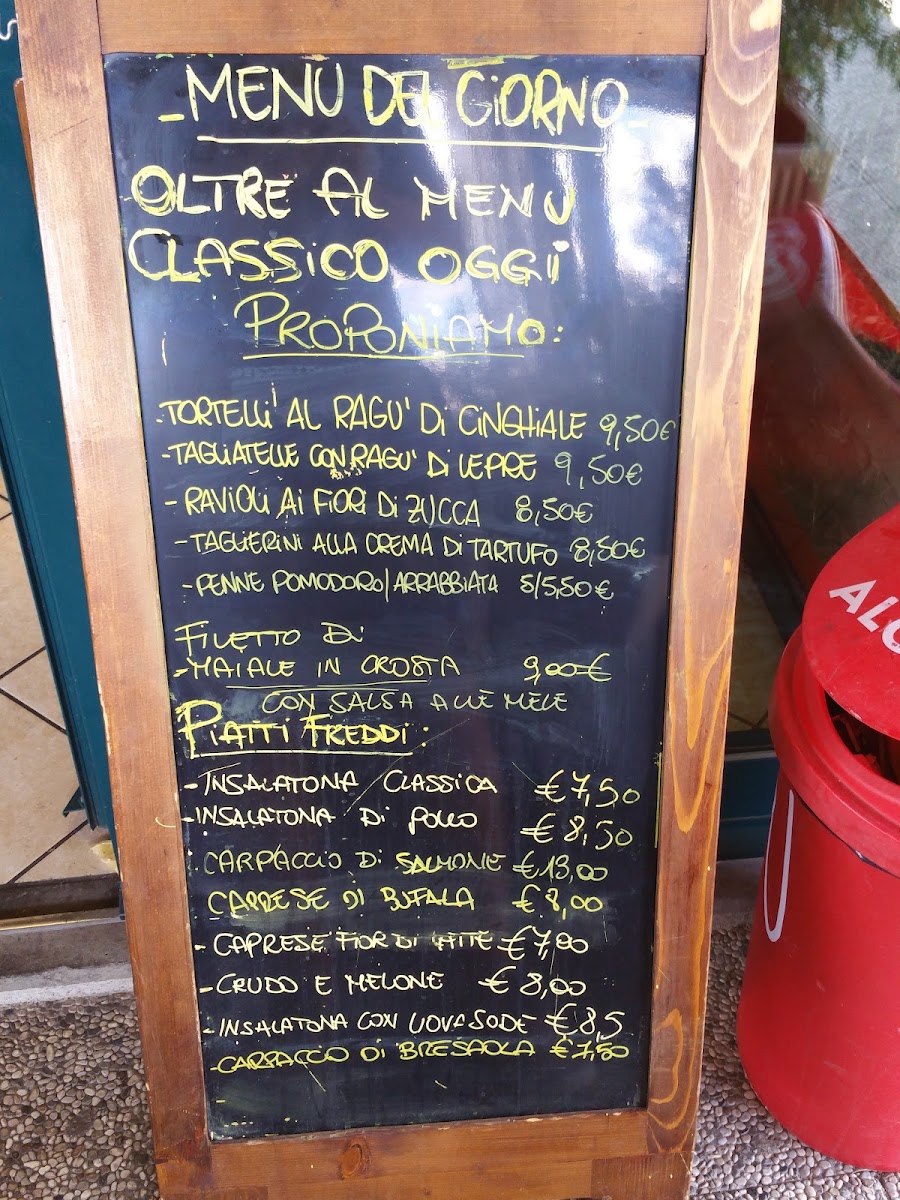 - MENU DEL GIORNO -
OLTRE AL MENU
CLASSICO OGGI
PROPONIAMO:
- TORTELLI AL RAGU' DI CINGHIALE 9,50€
- TAGLIATELLE CON RAGU' DI LEPRE 9,50€
- RAVIOLI AI FIORI DI ZUCCA 8,50€
- TAGLIERINI ALLA CREMA DI TARTUFO 8,50€
- PENNE POMODORO/ARRABBIATA 5/5,50€
FILETTO DI
- MAIALE IN CROSTA 9,00€
CON SALSA ALLE MELE
PIATTI FREDDI:
- INSALATONA CLASSICA €7,50
- INSALATONA DI POLLO €8,50
- CARPACCIO DI SALMONE €13,00
CAPRESE DI BUFALA €8,00
- CAPRESE FIOR DI LATTE €7,00
- CRUDO E MELONE €8,00
- INSALATONA CON UOVA SODE €8,5
- CARPACCIO DI BRESAOLA €7,50
-